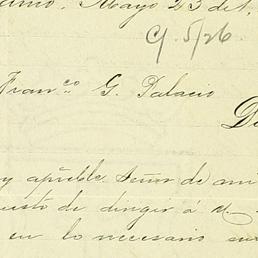 Mayo 23 de
C. 5/26.
Fran.co G. Palacio
y apible Señor de mi
usto de dirigir á
en lo necesario